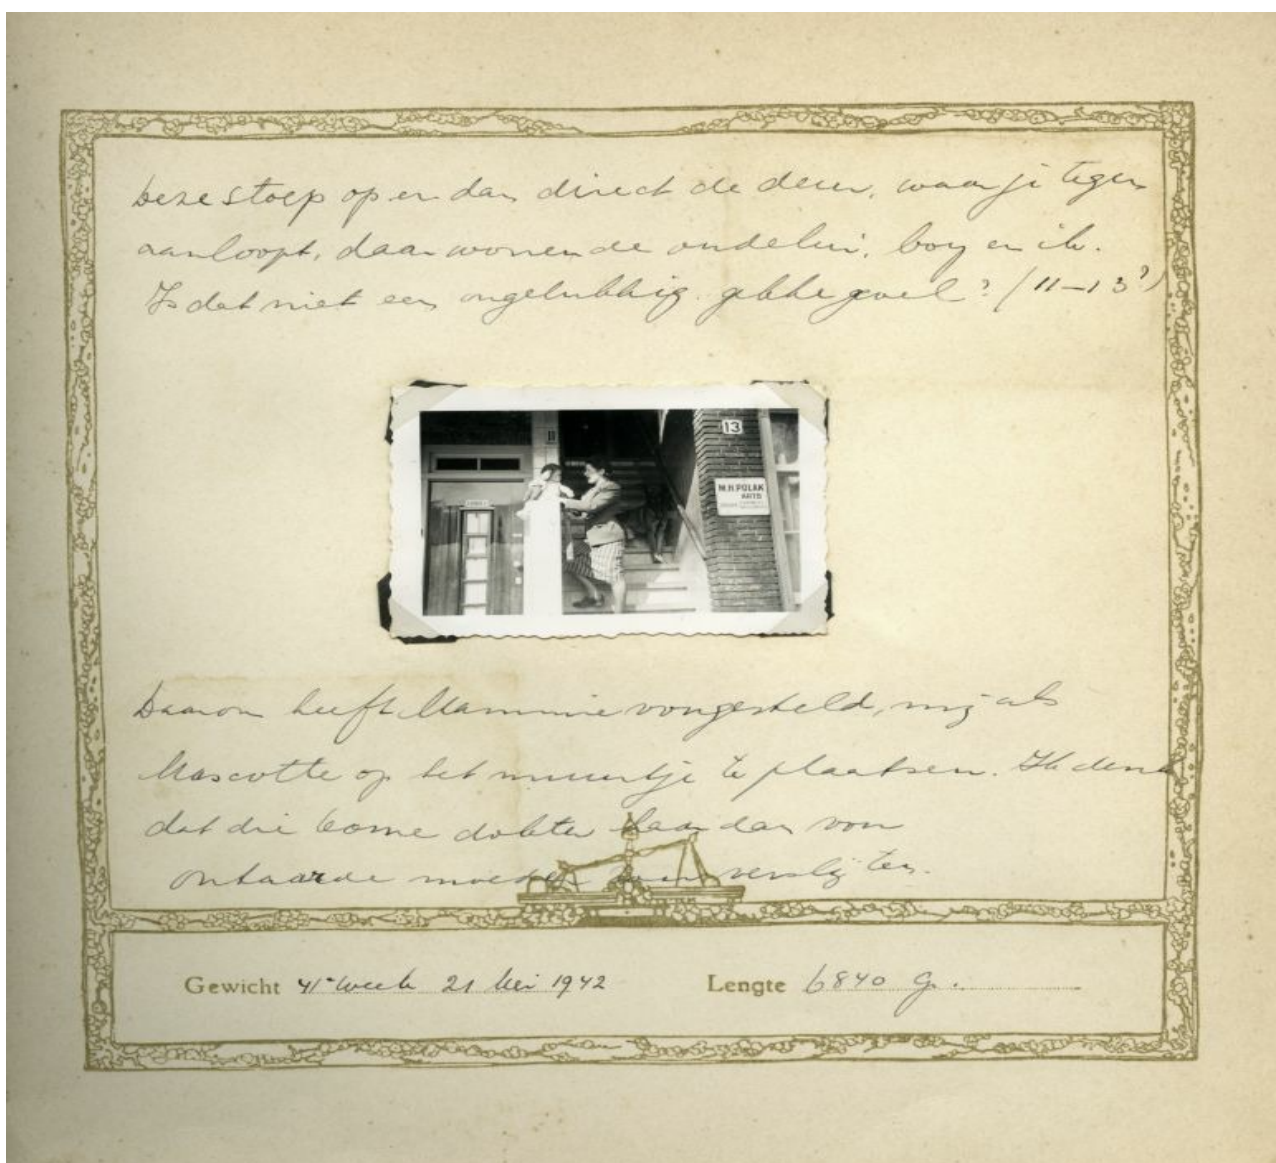 Deze stoep op en dan direct de deur, waar je tegen
aanloopt, daar wonen de oudelui, boy en ik.
Is dat niet een ongelukkig gekke geval? (11-13?)
11
13
M.H. POLAK
ARTS
Daarom heeft Mammie voorgesteld, mij als
Mascotte op het muurtje te plaatsen. Ik denk
dat die booze dokter haar dan voor
ontaarde moeder zou verslijten.
Gewicht 41e week 21 Mei 1942
Lengte 6840 Gr.